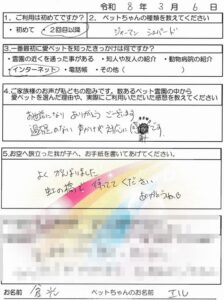 令和 8 年 3 月 6 日
1.ご利用は初めてですか？
2.ペットちゃんの種類を教えてください
・初めて ・2回目以降
ジャーマン シェパード
3.一番最初に愛ペットを知ったきっかけは何ですか？
・霊園の近くを通った事がある ・知人や友人の紹介 ・動物病院の紹介
・インターネット ・電話帳 ・その他（ ）
4.ご家族様のお声が私どもの励みです。数あるペット霊園の中から
愛ペットを選んだ理由や、実際にご利用いただいた感想を教えてください
お世話になり ありがとう ございます
5.お空へ旅立った我が子へ、お手紙を書いてあげてください。
よく がんばりました
虹の橋で 待っててください
ありがとうね
お名前
ペットちゃんのお名前 エル